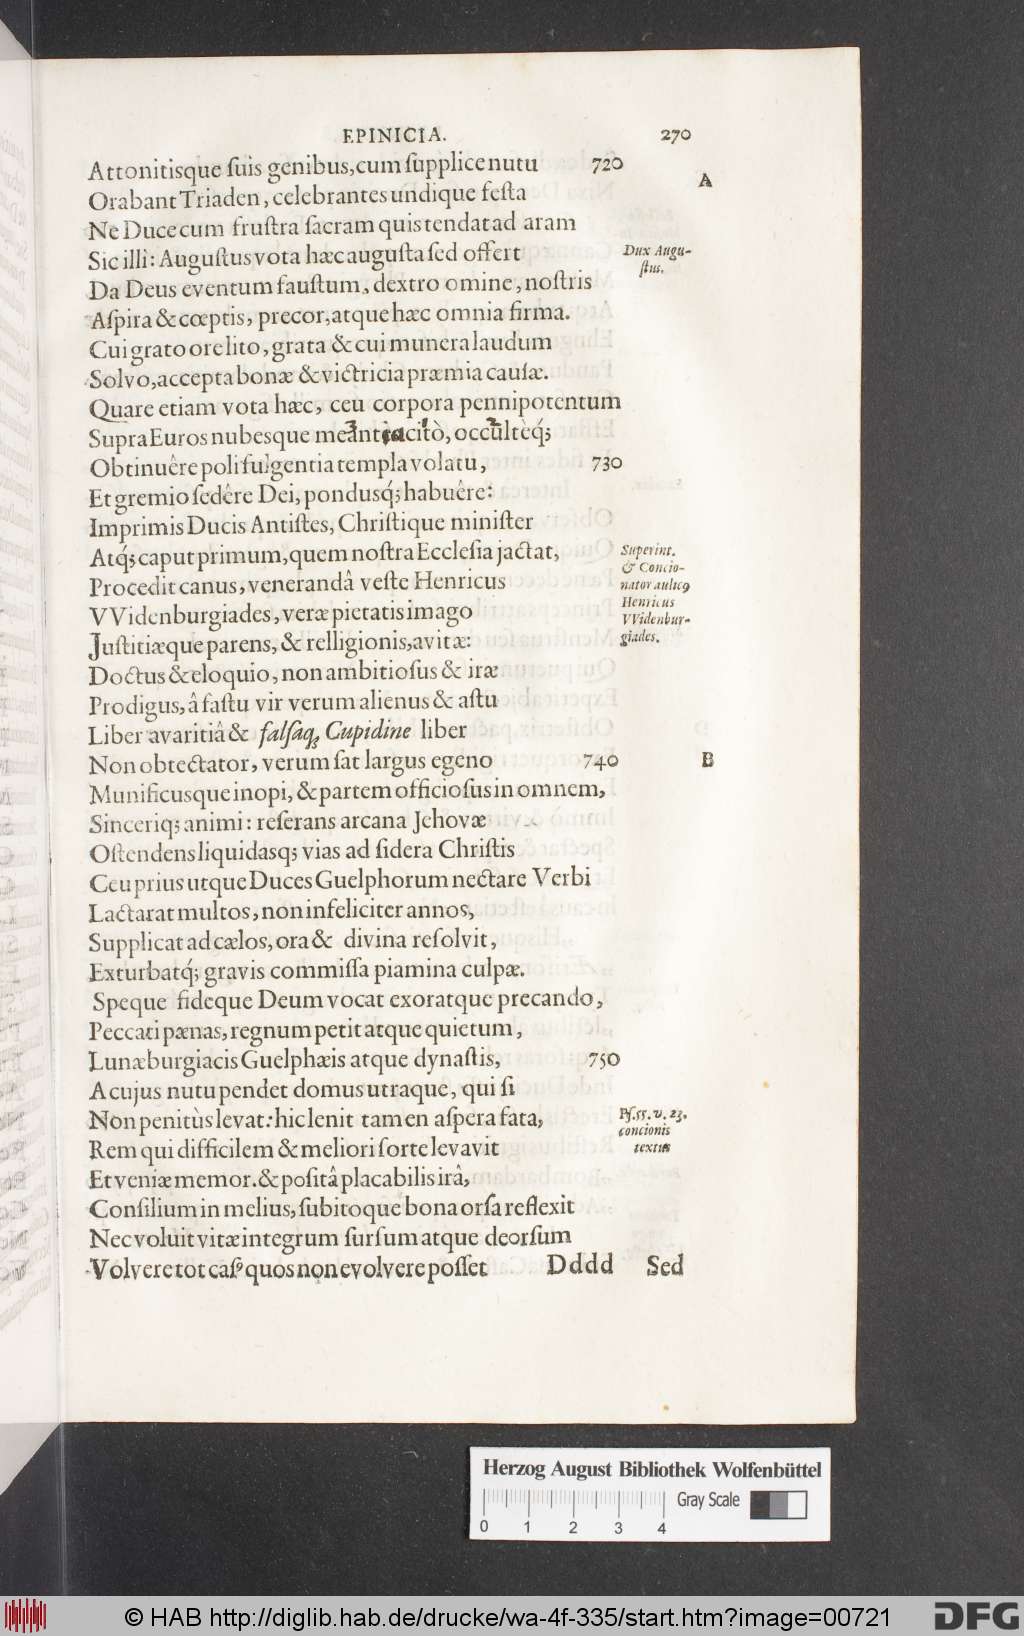 EPINICIA. 270
Attonitisque ſuis genibus, cum ſupplice nutu 720
A
Orabant Triaden, celebrantes undique feſta
Ne Duce cum fruſtra ſacram quis tendat ad aram
Sic illì: Auguſtus vota hæc auguſta ſed offert
Dux Augu-
ſtus.
Da Deus eventum fauſtum, dextro omine, noſtris
Aſpira & cœptis, precor, atque hæc omnia firma.
Cui grato ore lito, grata & cui munera laudum
Solvo, accepta bonæ & victricia præmia cauſæ.
Quare etiam vota hæc, ceu corpora pennipotentum
Supra Euros nubesque meant tacitò, occultèq́;
Obtinuêre poli fulgentia templa volatu, 730
Et gremio ſedêre Dei, pondusq́; habuêre:
Imprimis Ducis Antiſtes, Chriſtique miniſter
Atq́; caput primum, quem noſtra Eccleſia jactat,
Superint.
& Concio-
nator aulicꝰ
Henricus
VVidenbur-
giades.
Procedit canus, venerandâ veſte Henricus
VVidenburgiades, veræ pietatis imago
Juſtitiæque parens, & relligionis, avitæ:
Doctus & eloquio, non ambitioſus & iræ
Prodigus, â faſtu vir verum alienus & aſtu
Liber avaritiâ & falſaq; Cupidine liber
Non obtectator, verum ſat largus egeno 740
B
Munificusque inopi, & partem officioſus in omnem,
Sinceriq; animi: reſerans arcana Jehovæ
Oſtendens liquidasq; vias ad ſidera Chriſtis
Ceu prius utque Duces Guelphorum nectare Verbi
Lactarat multos, non infeliciter annos,
Supplicat ad cælos, ora & divina reſolvit,
Exturbatq́; gravis commiſſa piamina culpæ.
Speque fideque Deum vocat exoratque precando,
Peccati pænas, regnum petit atque quietum,
Lunæburgiacis Guelphæis atque dynaſtis, 750
A cujus nutu pendet domus utraque, qui ſi
Non penitùs levat: hic lenit tamen aſpera fata,
Pſ. 55. v. 23.
concionis
textus
Rem qui difficilem & meliori ſorte levavit
Et veniæ memor. & poſitâ placabilis irâ,
Conſilium in melius, ſubitoque bona orſa reflexit
Nec voluit vitæ integrum ſurſum atque deorſum
Volvere tot caſꝰ quos non evolvere poſſet Dddd Sed
Herzog August Bibliothek Wolfenbüttel
Gray Scale
0 1 2 3 4
© HAB http://diglib.hab.de/drucke/wa-4f-335/start.htm?image=00721
DFG